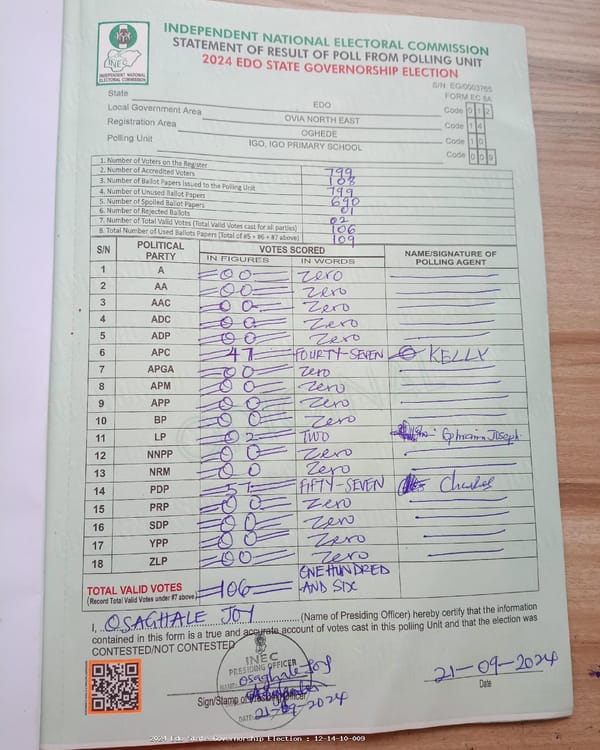 INDEPENDENT NATIONAL ELECTORAL COMMISSION
STATEMENT OF RESULT OF POLL FROM POLLING UNIT
2024 EDO STATE GOVERNORSHIP ELECTION
INEC
INDEPENDENT NATIONAL ELECTORAL COMMISSION
S/N: EG/0003765
FORM EC 8A
State EDO Code 0 1 2
Local Government Area OVIA NORTH EAST Code 1 4
Registration Area OGHEDE Code 1 0
Polling Unit IGO, IGO PRIMARY SCHOOL Code 0 0 9
1. Number of Voters on the Register 799
2. Number of Accredited Voters 108
3. Number of Ballot Papers Issued to the Polling Unit 799
4. Number of Unused Ballot Papers 690
5. Number of Spoiled Ballot Papers 01
6. Number of Rejected Ballots 02
7. Number of Total Valid Votes (Total Valid Votes cast for all parties) 106
8. Total Number of Used Ballots Papers (Total of #5 + #6 + #7 above) 109
S/N POLITICAL PARTY VOTES SCORED NAME/SIGNATURE OF POLLING AGENT
IN FIGURES IN WORDS
1 A 00 Zero
2 AA 00 Zero
3 AAC 00 Zero
4 ADC 00 Zero
5 ADP 00 Zero
6 APC 47 FOURTY-SEVEN KELLY
7 APGA 00 Zero
8 APM 00 Zero
9 APP 00 Zero
10 BP 00 Zero
11 LP 02 TWO Ephraim Joseph
12 NNPP 00 Zero
13 NRM 00 Zero
14 PDP 57 FIFTY-SEVEN Charles
15 PRP 00 Zero
16 SDP 00 Zero
17 YPP 00 Zero
18 ZLP 00 Zero
TOTAL VALID VOTES 106 ONE HUNDRED AND SIX
(Record Total Valid Votes under #7 above)
I, OSAGHALE JOY (Name of Presiding Officer) hereby certify that the information
contained in this form is a true and accurate account of votes cast in this polling Unit and that the election was
CONTESTED/NOT CONTESTED
INEC
PRESIDING OFFICER
NAME: Osaghale Joy
DATE: 21-09-2024
Sign/Stamp of Presiding Officer
21-09-2024
Date
2024 Edo State Governorship Election : 12-14-10-009